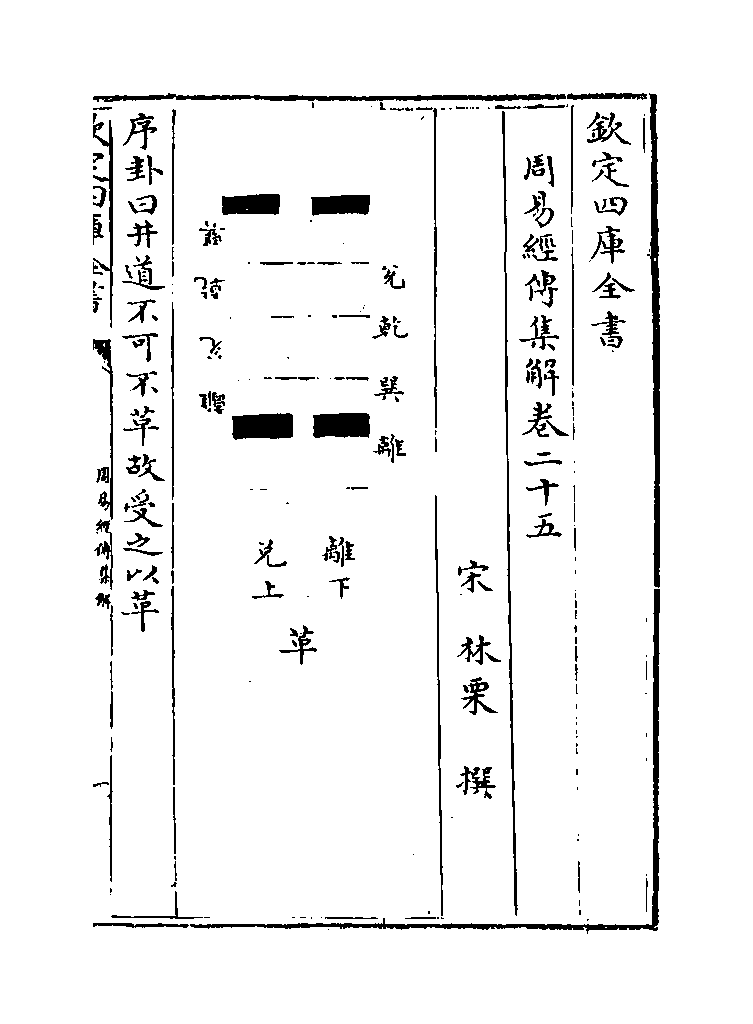 欽定四庫全書
周易經傳集解卷二十五
宋 林栗 撰
兌
乾
巽
離
離下
兌上
革
巽
乾
兌
離
序卦曰井道不可不革故受之以革
欽定四庫全書
周易經傳集解
一